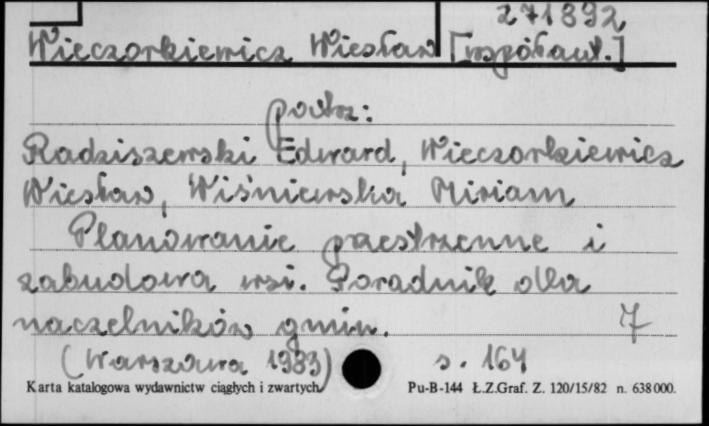 271892
Wieczorkiewicz Wiesław [współaut.]
patrz:
Radziszewski Edward, Wieczorkiewicz
Wiesław, Wiśniewska Miriam
Planowanie przestrzenne i
zabudowa wsi. Poradnik dla
naczelników gmin. 7
(Warszawa 1983) s. 164
Karta katalogowa wydawnictw ciągłych i zwartych Pu-B-144 Ł.Z.Graf. Z. 120/15/82 n. 638000.